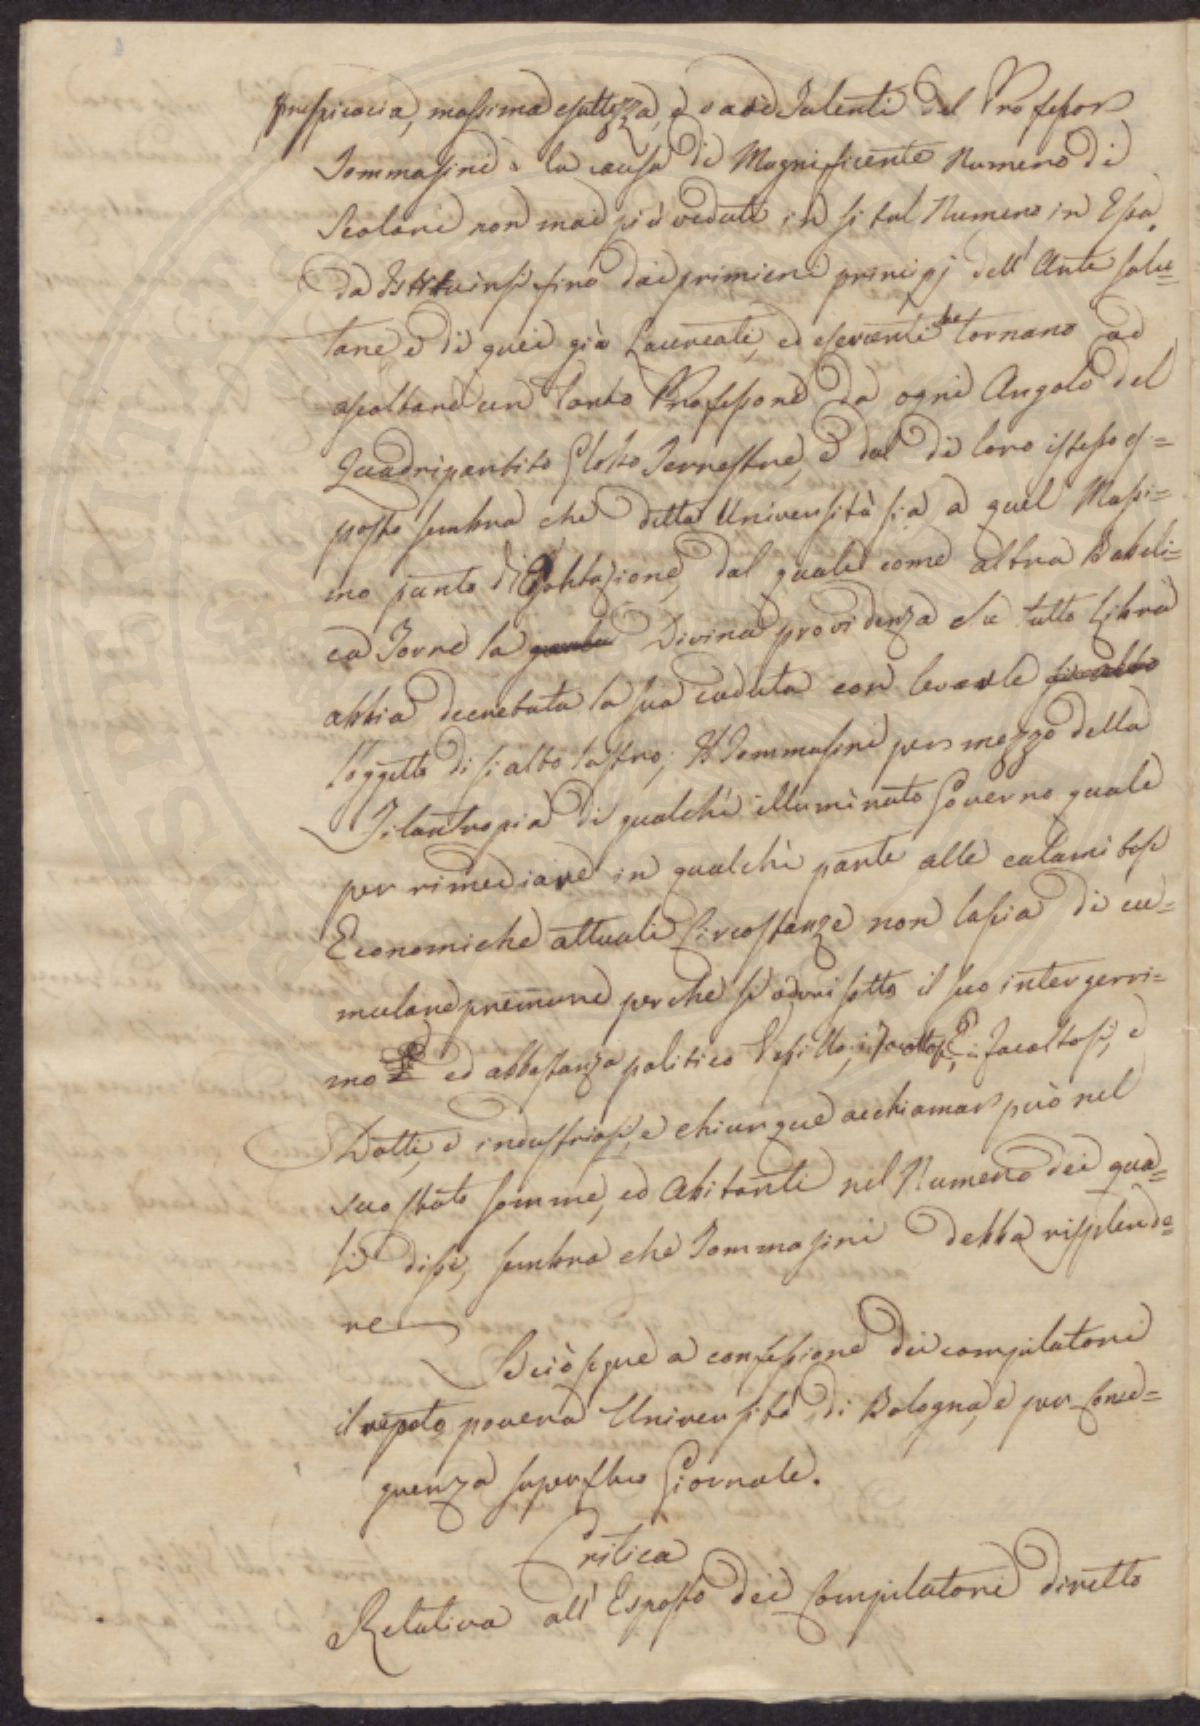 prespicacia, massima esattezza, e varii Talenti del Professor
Tommasini e la causa di Magnificente Numero di
Scolari non mai più veduti in si tal Numero in Essa,
da Istituirsi fino dai primieri principj dell'Arte salu=
tare e di quei già Laureati, ed esercenti che tornano ad
ascoltare un tanto Professore da ogni Angolo del
Quadripartito Globo Terrestre, e dal di loro istesso es=
posto sembra che detta Università sia a quel Massi=
mo punto di Esaltazione, dal quale come altra Babeli=
ca Torre la Divina providenza che tutto libra
abbia decretata la sua caduta con levarle
soggetto di si alto lastro; Il Tommasini per mezzo della
Filantropia di qualche illuminato Governo quale
per rimediare in qualche parte alle calamitose
Economiche attuali Circostanze non lascia di cu=
mulare premure perche si adorni sotto il suo intergerri=
mo ed abbastanza politico Vessillo, i Facoltosi, e
Dotti, e industriosi, e chiunque acchiamar può nel
suo stato somme, ed Abitanti nel Numero dei qua=
li dissi, sembra che Tommasini debba risplende=
re
Se ciò segue a confessione dei compilatori
il resto povera Università di Bologna, e per conse=
guenza superfluo Giornale.
Critica
Relativa all'Esposto dei Compilatori diretto